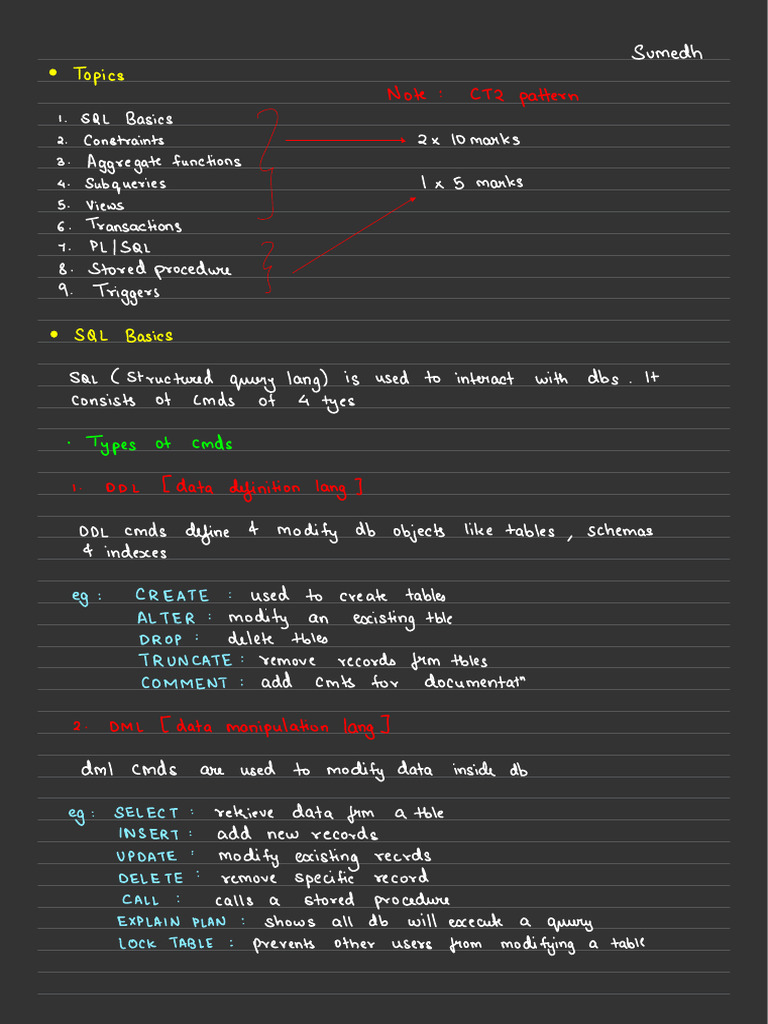 Sumedh
• Topics
Note : CT2 pattern
1. SQL Basics
2. Constraints
3. Aggregate functions
4. Subqueries
5. Views
6. Transactions
7. PL/SQL
8. Stored procedure
9. Triggers
2 x 10 marks
1 x 5 marks
• SQL Basics
SQL ( Structured query lang) is used to interact with dbs. It
consists of cmds of 4 tyes
· Types of cmds
1. DDL [data definition lang]
DDL cmds define & modify db objects like tables, schemas
& indexes
eg : CREATE : used to create tables
ALTER : modify an existing tble
DROP : delete tbles
TRUNCATE : remove records frm tbles
COMMENT : add cmts for documentatⁿ
2. DML [data manipulation lang]
dml cmds are used to modify data inside db
eg : SELECT : retrieve data frm a tble
INSERT : add new records
UPDATE : modify existing recrds
DELETE : remove specific record
CALL : calls a stored procedure
EXPLAIN PLAN : shows all db will execute a query
LOCK TABLE : prevents other users from modifying a table